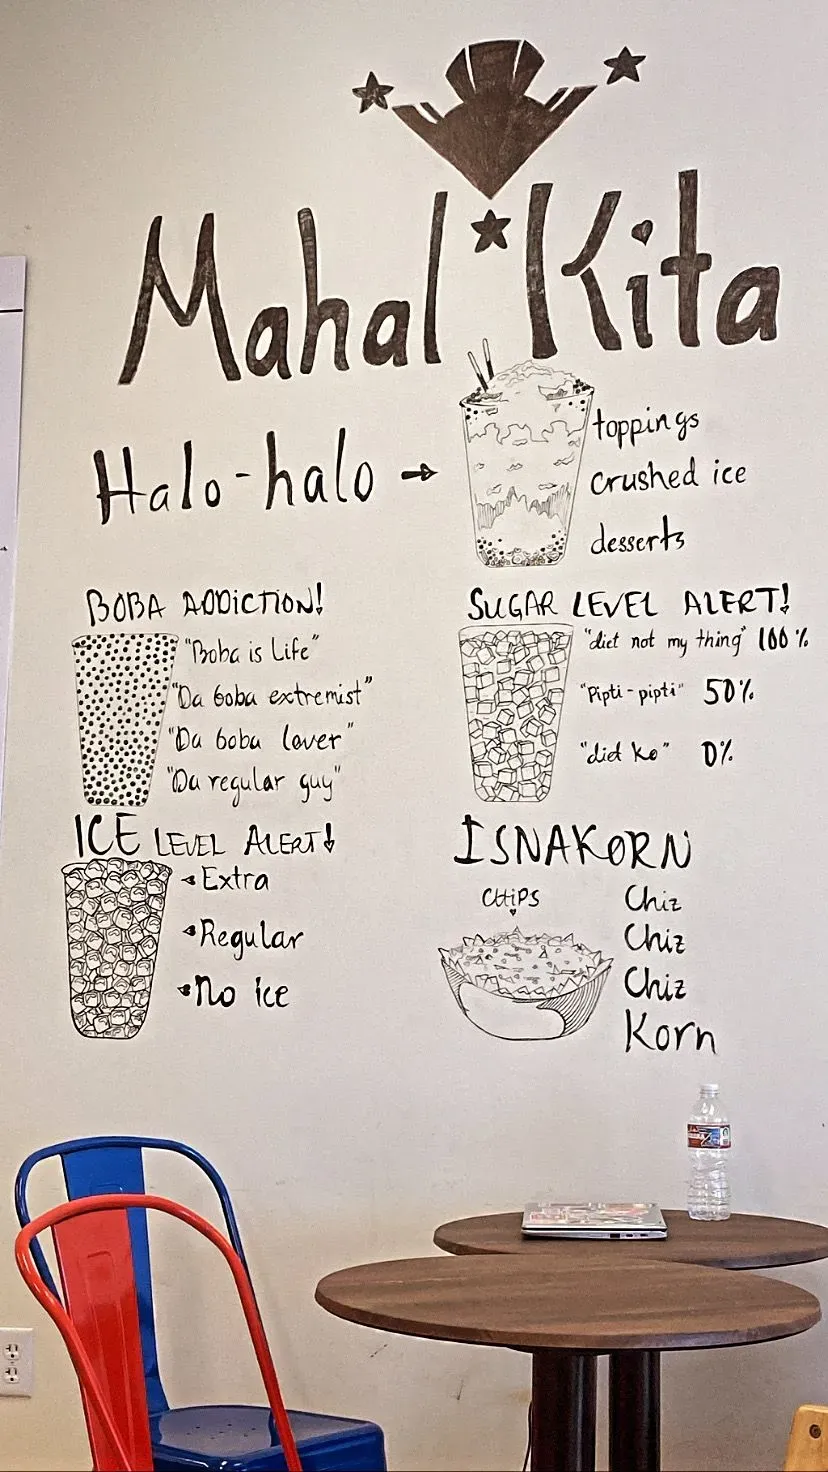 Mahal Kita
Halo-halo →
toppings
crushed ice
desserts
BOBA ADDICTION!
"Boba is Life"
"Da boba extremist"
"Da boba lover"
"Da regular guy"
SUGAR LEVEL ALERT!
"diet not my thing" 100%
"Pipti-pipti" 50%
"diet ko" 0%
ICE LEVEL ALERT!
Extra
Regular
No ice
ISNAKORN
CHiPS
Chiz
Chiz
Chiz
Korn